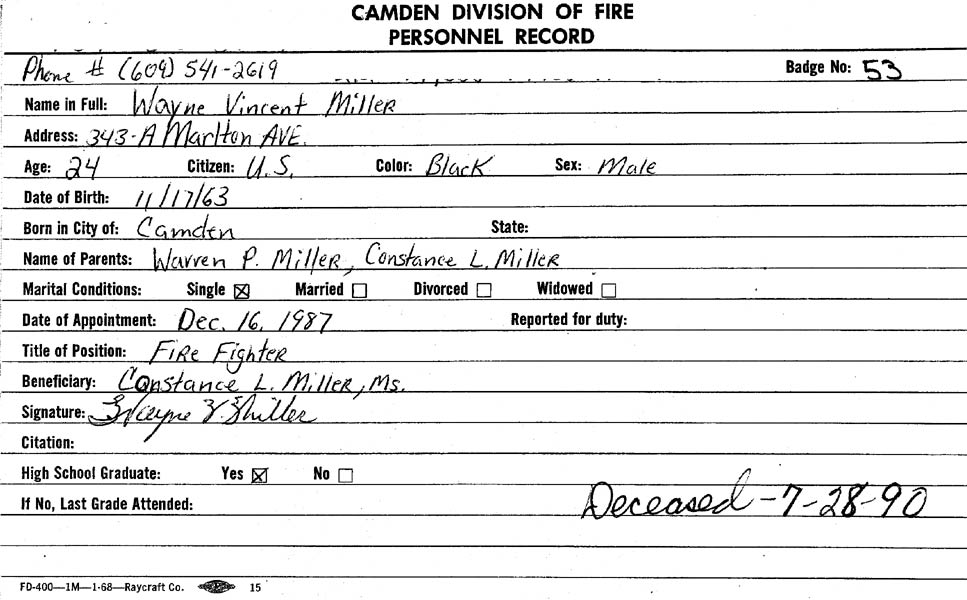 CAMDEN DIVISION OF FIRE
PERSONNEL RECORD
Phone # (609) 541-2619 Badge No: 53
Name in Full: Wayne Vincent Miller
Address: 343-A Marlton AVE.
Age: 24 Citizen: U.S. Color: Black Sex: Male
Date of Birth: 11/17/63
Born in City of: Camden State:
Name of Parents: Warren P. Miller, Constance L. Miller
Marital Conditions: Single ☒ Married ☐ Divorced ☐ Widowed ☐
Date of Appointment: Dec. 16, 1987 Reported for duty:
Title of Position: Fire Fighter
Beneficiary: Constance L. Miller, Ms.
Signature: Wayne V. Miller
Citation:
High School Graduate: Yes ☒ No ☐
If No, Last Grade Attended: Deceased-7-28-90
FD-400—1M—1-68—Raycraft Co. 15